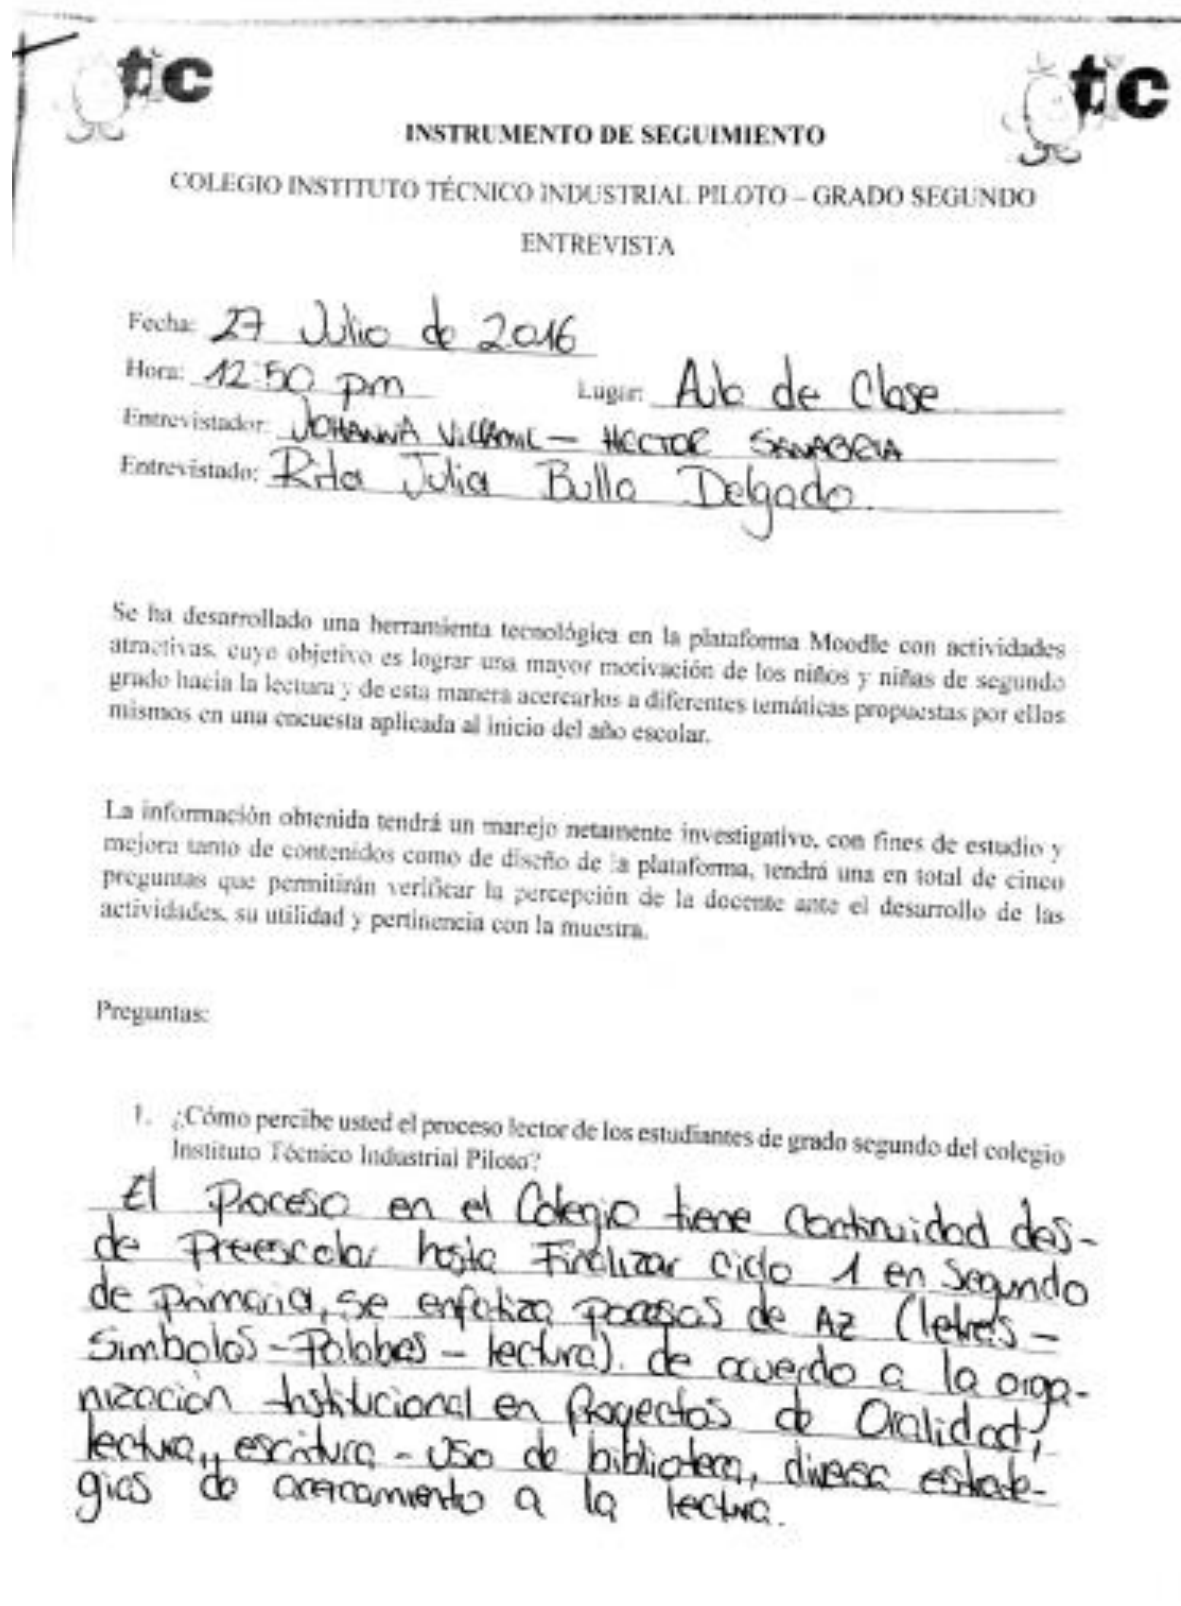 tic
tic
INSTRUMENTO DE SEGUIMIENTO
COLEGIO INSTITUTO TÉCNICO INDUSTRIAL PILOTO – GRADO SEGUNDO
ENTREVISTA
Fecha: 27 Julio de 2016
Hora: 12:50 pm Lugar: Aula de Clase
Entrevistador: JOHANNA VILLAMIL – HECTOR SANABRIA
Entrevistado: Rita Julia Bulla Delgado.
Se ha desarrollado una herramienta tecnológica en la plataforma Moodle con actividades
atractivas, cuyo objetivo es lograr una mayor motivación de los niños y niñas de segundo
grado hacia la lectura y de esta manera acercarlos a diferentes temáticas propuestas por ellos
mismos en una encuesta aplicada al inicio del año escolar.
La información obtenida tendrá un manejo netamente investigativo, con fines de estudio y
mejora tanto de contenidos como de diseño de la plataforma, tendrá una en total de cinco
preguntas que permitirán verificar la percepción de la docente ante el desarrollo de las
actividades, su utilidad y pertinencia con la muestra.
Preguntas:
1. ¿Cómo percibe usted el proceso lector de los estudiantes de grado segundo del colegio
Instituto Técnico Industrial Piloto?
El Proceso en el Colegio tiene continuidad des-
de Preescolar hasta Finalizar ciclo 1 en Segundo
de primaria, se enfatiza procesos de AZ (letras –
Simbolos – Palabras – lectura). de acuerdo a la orga-
nización Institucional en Proyectos de Oralidad,
lectura, escritura – uso de biblioteca, diversa estrate-
gias de acercamiento a la lectura.